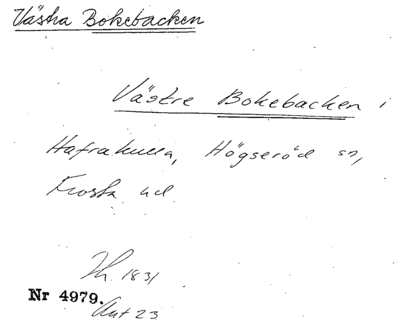 Västra Bokebacken
Västre Bokebacken i
Hafrakulla, Högseröd sn,
Frosta hd.
Th. 1831
Nr 4979.
Ant 23